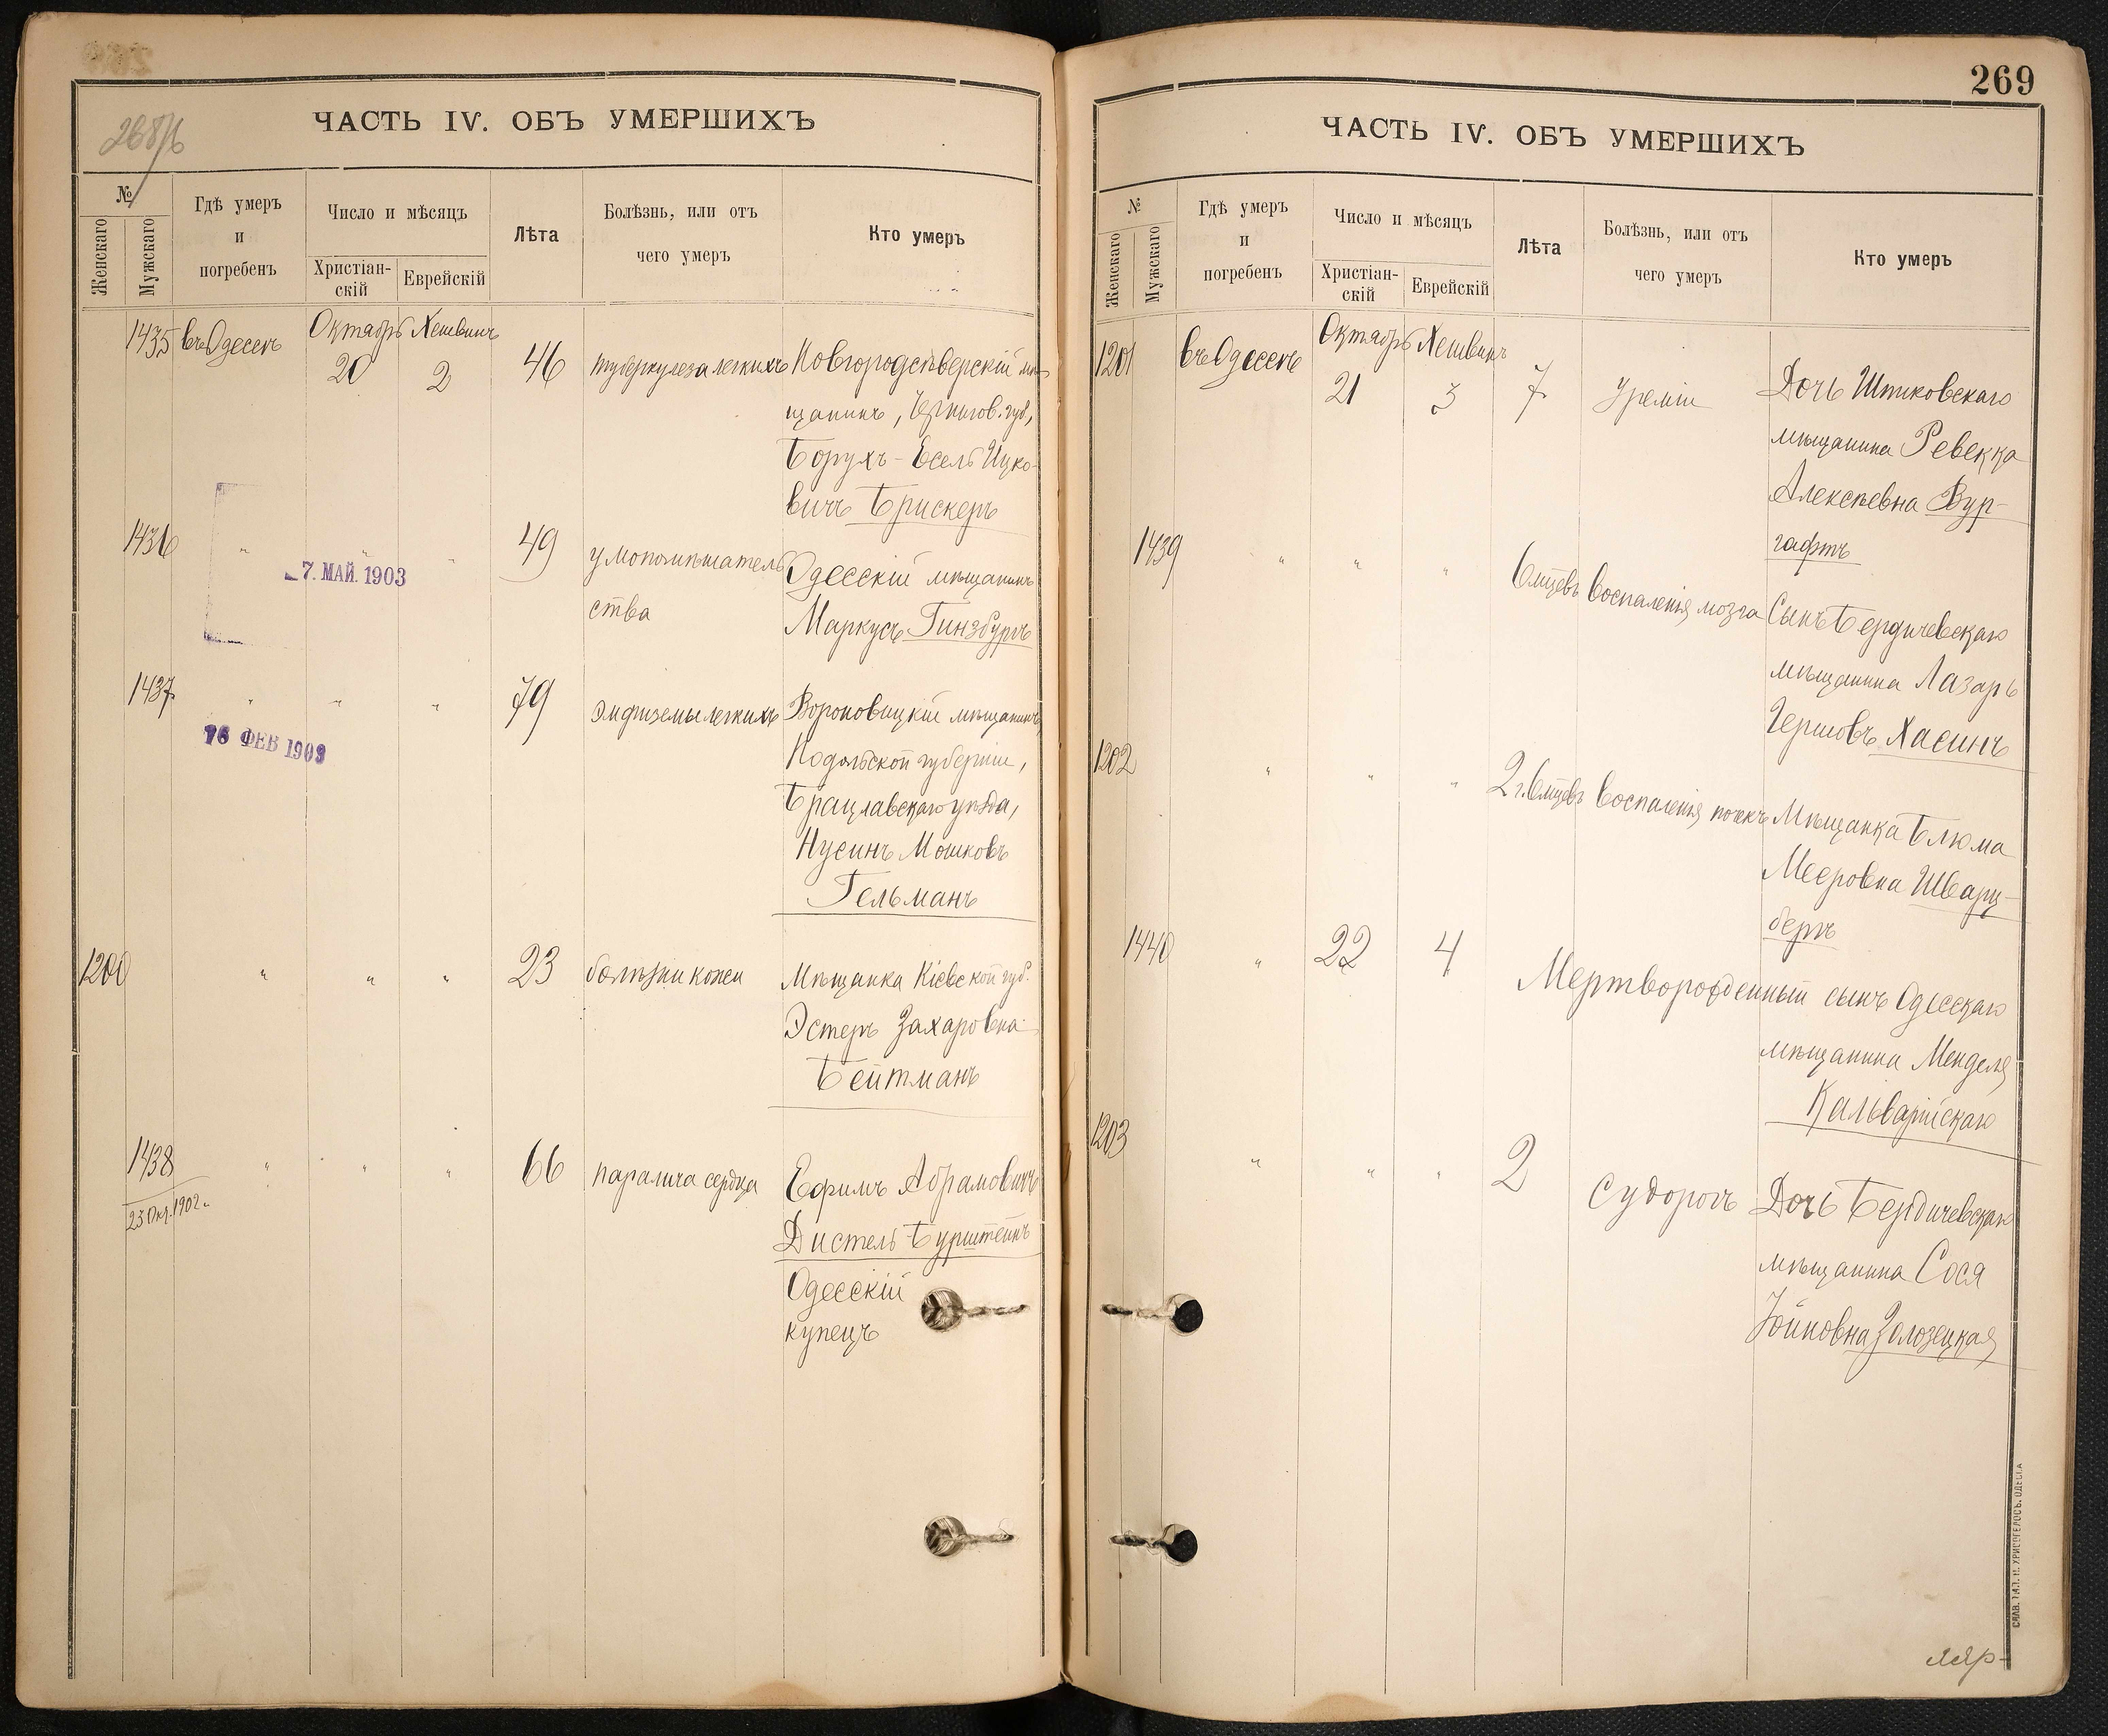 268/б
ЧАСТЬ IV. ОБЪ УМЕРШИХЪ
№
Женскаго
Мужскаго
Гдѣ умеръ
и
погребенъ
Число и мѣсяцъ
Христіан-
скій
Еврейскій
Лѣта
Болѣзнь, или отъ
чего умеръ
Кто умеръ
1435 въ Одессѣ Октябрь 20 Хешвинъ 2 46 туберкулеза легкихъ Новгородсѣверскій мѣ-
щанинъ, Чернигов. губ.,
Борухъ-Есель Ицко-
вичъ Брискеръ
1436 " " " 49 умопомѣшатель Одесскій мѣщанинъ
ства Маркусъ Гинзбургъ
7. МАЙ. 1903
1437 " " " 79 эмфиземы легкихъ Вороновицкій мѣщанинъ,
16 ФЕВ 1903
Подольской губерніи,
Брацлавскаго уѣзда,
Нусинъ Мошковъ
Гельманъ
1200 " " " 23 болѣзни кожи Мѣщанка Кіевской губ.
Эстеръ Захаровна
Бейтманъ
1438 " " " 66 паралича сердца Ефимъ Абрамовичъ
23 Окт. 1902 г.
Дистель Бурштейнъ
Одесскій
купецъ
269
ЧАСТЬ IV. ОБЪ УМЕРШИХЪ
№
Женскаго
Мужскаго
Гдѣ умеръ
и
погребенъ
Число и мѣсяцъ
Христіан-
скій
Еврейскій
Лѣта
Болѣзнь, или отъ
чего умеръ
Кто умеръ
1201 въ Одессѣ Октябрь 21 Хешвинъ 3 7 Уреміи Дочь Шпиковскаго
мѣщанина Ревекка
Алексѣевна Вур-
гафтъ
1439 " " " 6 мцевъ Воспаленія мозга Сынъ Бердичевскаго
мѣщанина Лазарь
Гершовъ Хасинъ
1202 " " " 2 г. 6 мцевъ Воспаленія почекъ Мѣщанка Блюма
Мееровна Шварц-
бергъ
1440 " 22 4 Мертворожденный сынъ Одесскаго
мѣщанина Менделя
Кальварійскаго
1203 " " " 2 Судорогъ Дочь Бердичевскаго
мѣщанина Сося
Іойновна Золозецкая
СЛАВ. ТИП. Н. ХРИСОГЕЛОСЪ. ОДЕССА